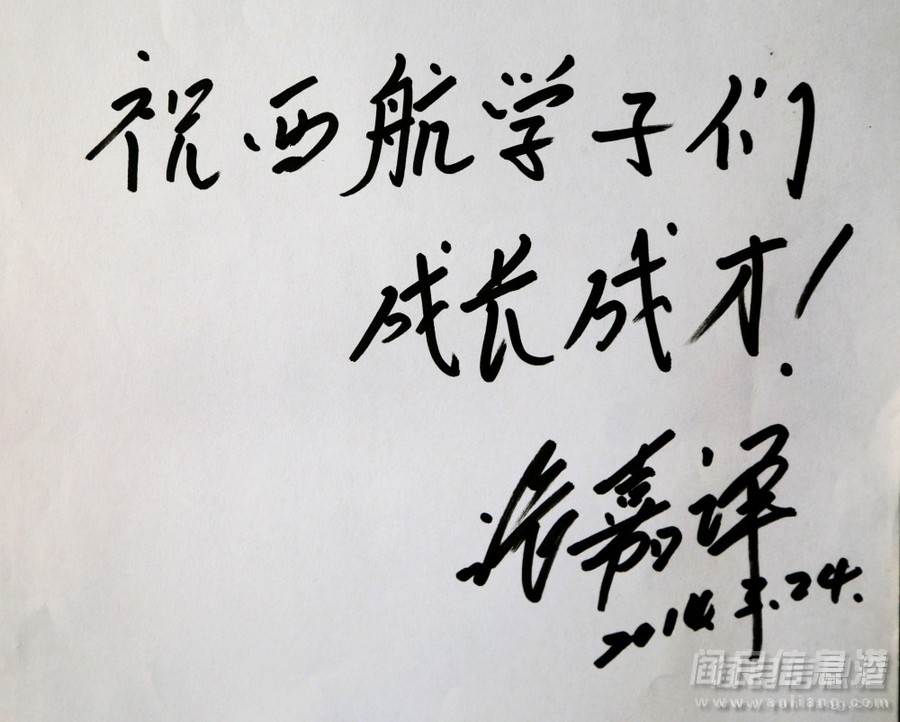 祝西航学子们
成长成才!
张嘉译
2014.3.24.
阎良信息港
www.yanliang.com